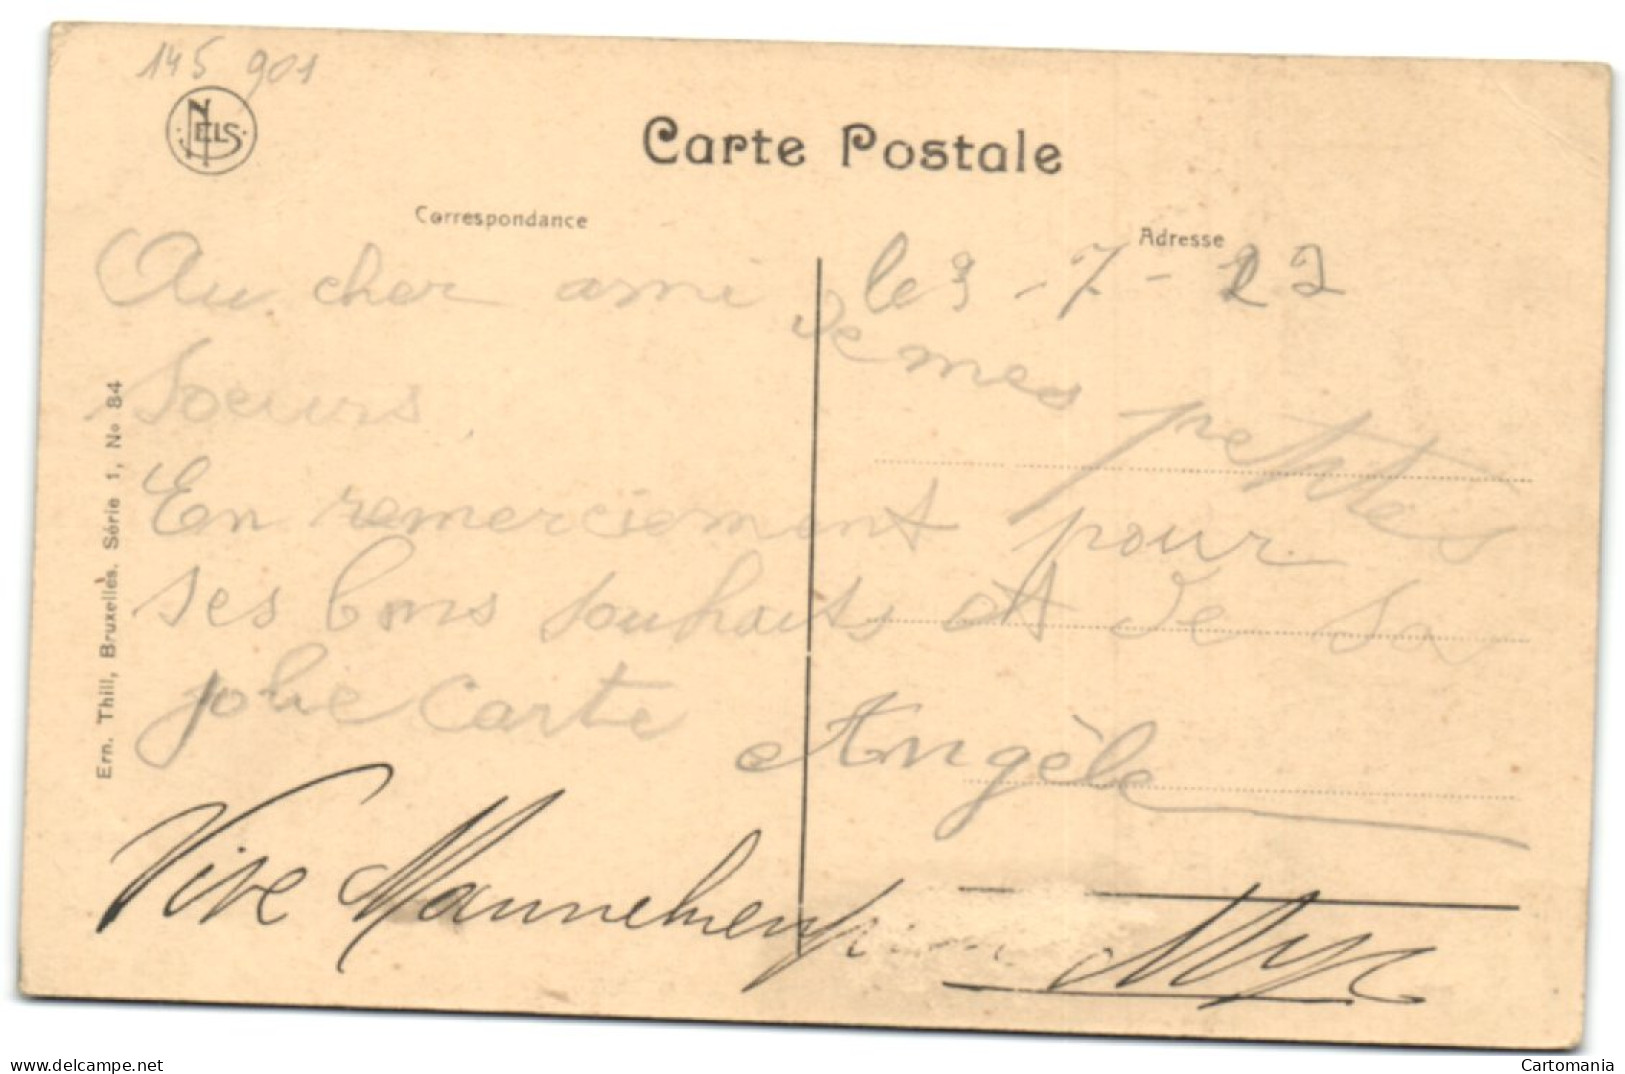 145 901
NELS
Carte Postale
Correspondance
Adresse
le 3-7-22
Au cher ami de mes petites
Soeurs.
En remerciement pour
ses bons souhaits et de sa
jolie carte
Angèle
Vive Mannekenpis
Ern. Thill, Bruxelles. Série 1, No 84
www.delcampe.net
Cartomania